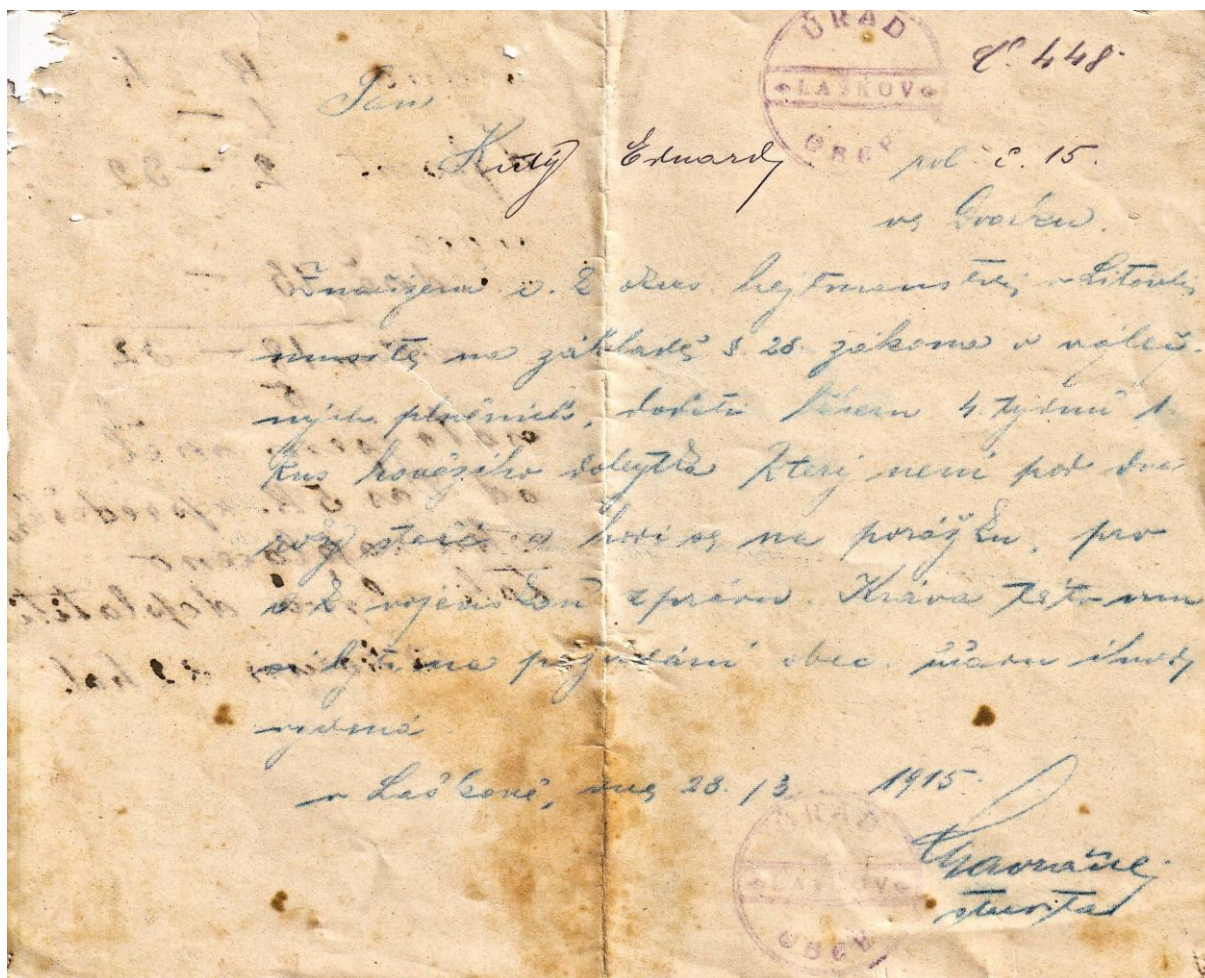 ÚRAD LAŠKOV OBCE
Č. 448.
Pan
Kutý Eduard rol č. 15.
ve Dvorku.
Znařízení c. k okres. hejtmanství v Litovli
musíte na základě §. 28. zákona o váleč-
ných plněních, dodati během 4 týdnů 1
kus hovězího dobytka který není pod dva
roky stáří a hodí se na porážku, pro
c k vojenskou správu. Kráva tato mu
si býti na požádání obec. úřadu ihned
vydaná
v Laškově, dne 28. /3. 1915.
starosta
ÚRAD LAŠKOV OBCE